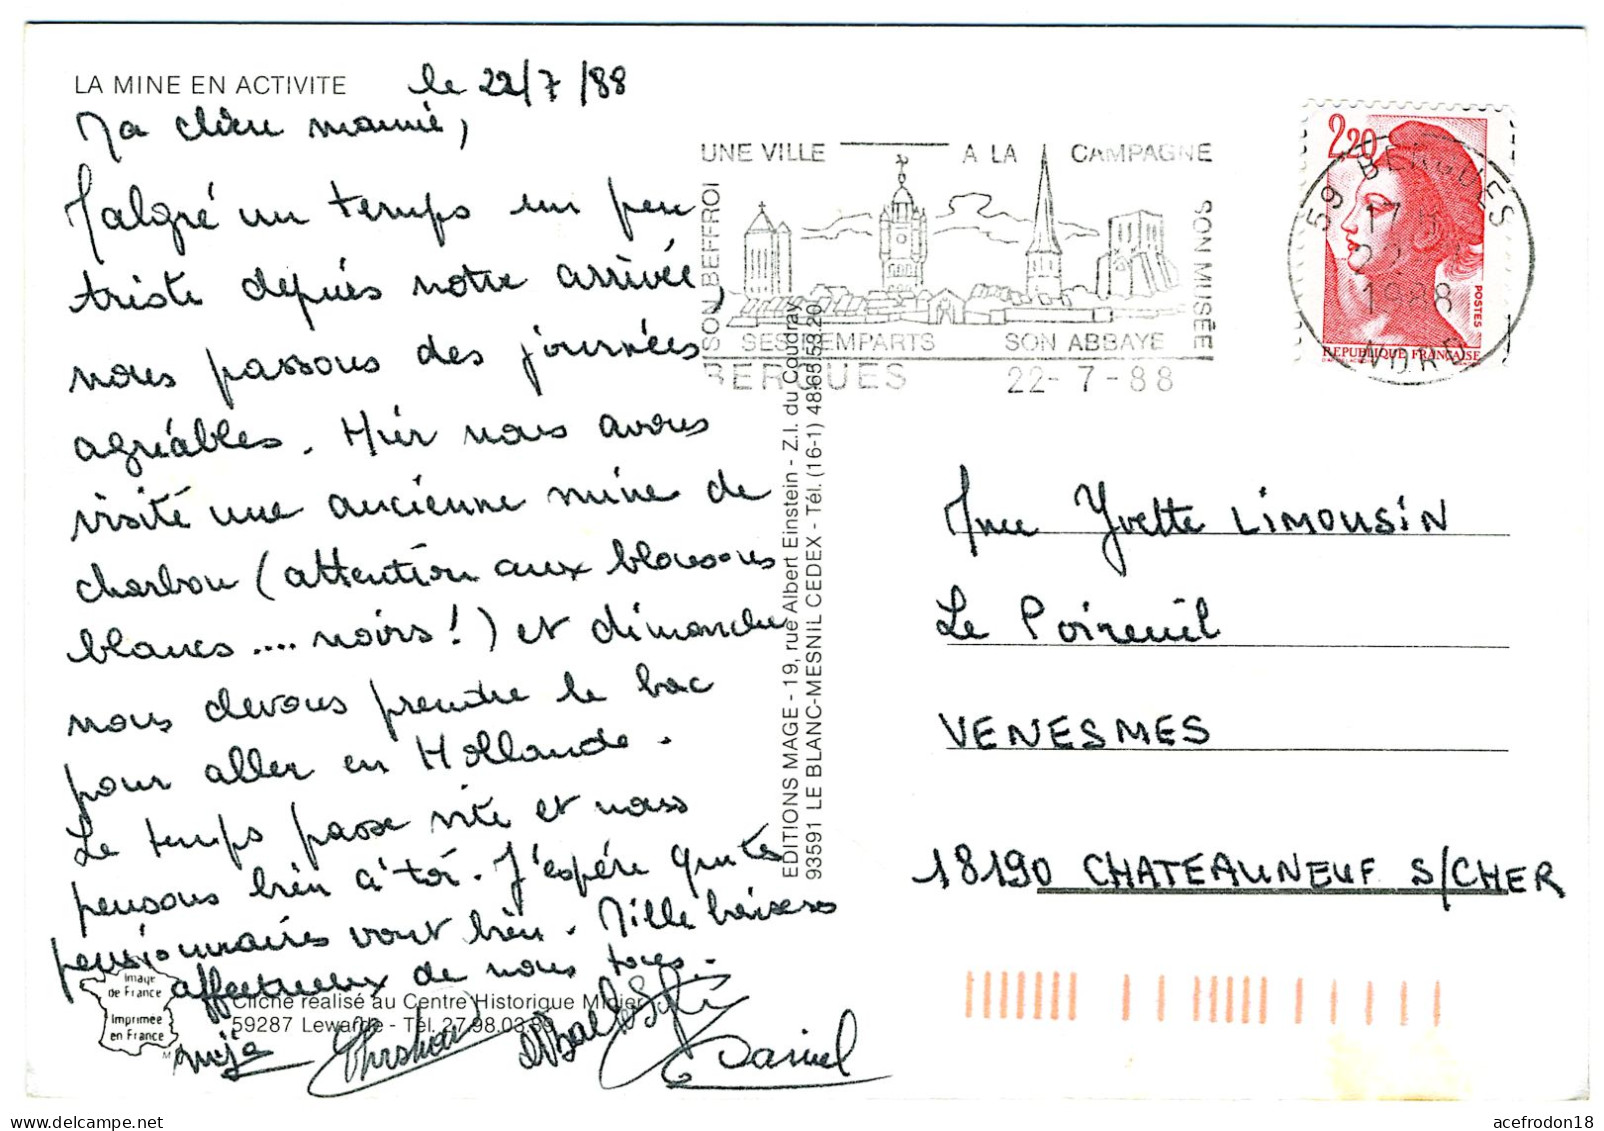 LA MINE EN ACTIVITE
le 22/7/88
Ma chère mamie,
Malgré un temps un peu
triste depuis notre arrivée,
nous passons des journées
agréables. Hier nous avons
visité une ancienne mine de
charbon (attention aux blousons
blancs .... noirs!) et dimanche
nous devons prendre le bac
pour aller en Hollande.
Le temps passe vite et nous
pensons bien à toi. J'espère que tes
pensionnaires vont bien. Mille baisers
affectueux de nous tous.
Christian
Daniel
Image
de France
Imprimée
en France
Cliché réalisé au Centre Historique Minier
59287 Lewarde - Tél. 27.98.03.89
EDITIONS MAGE - 19, rue Albert Einstein - Z.I. du Coudray
93591 LE BLANC-MESNIL CEDEX - Tél. (16-1) 48.65.53.20
UNE VILLE A LA CAMPAGNE
SON BEFFROI
SON MUSÉE
SES REMPARTS SON ABBAYE
BERGUES 22-7-88
2,20
POSTES
REPUBLIQUE FRANÇAISE
59 BERGUES
17 H
22-7
1988
NORD
Mme Yvette LIMOUSIN
Le Poireuil
VENESMES
18190 CHATEAUNEUF S/CHER
acefrodon18